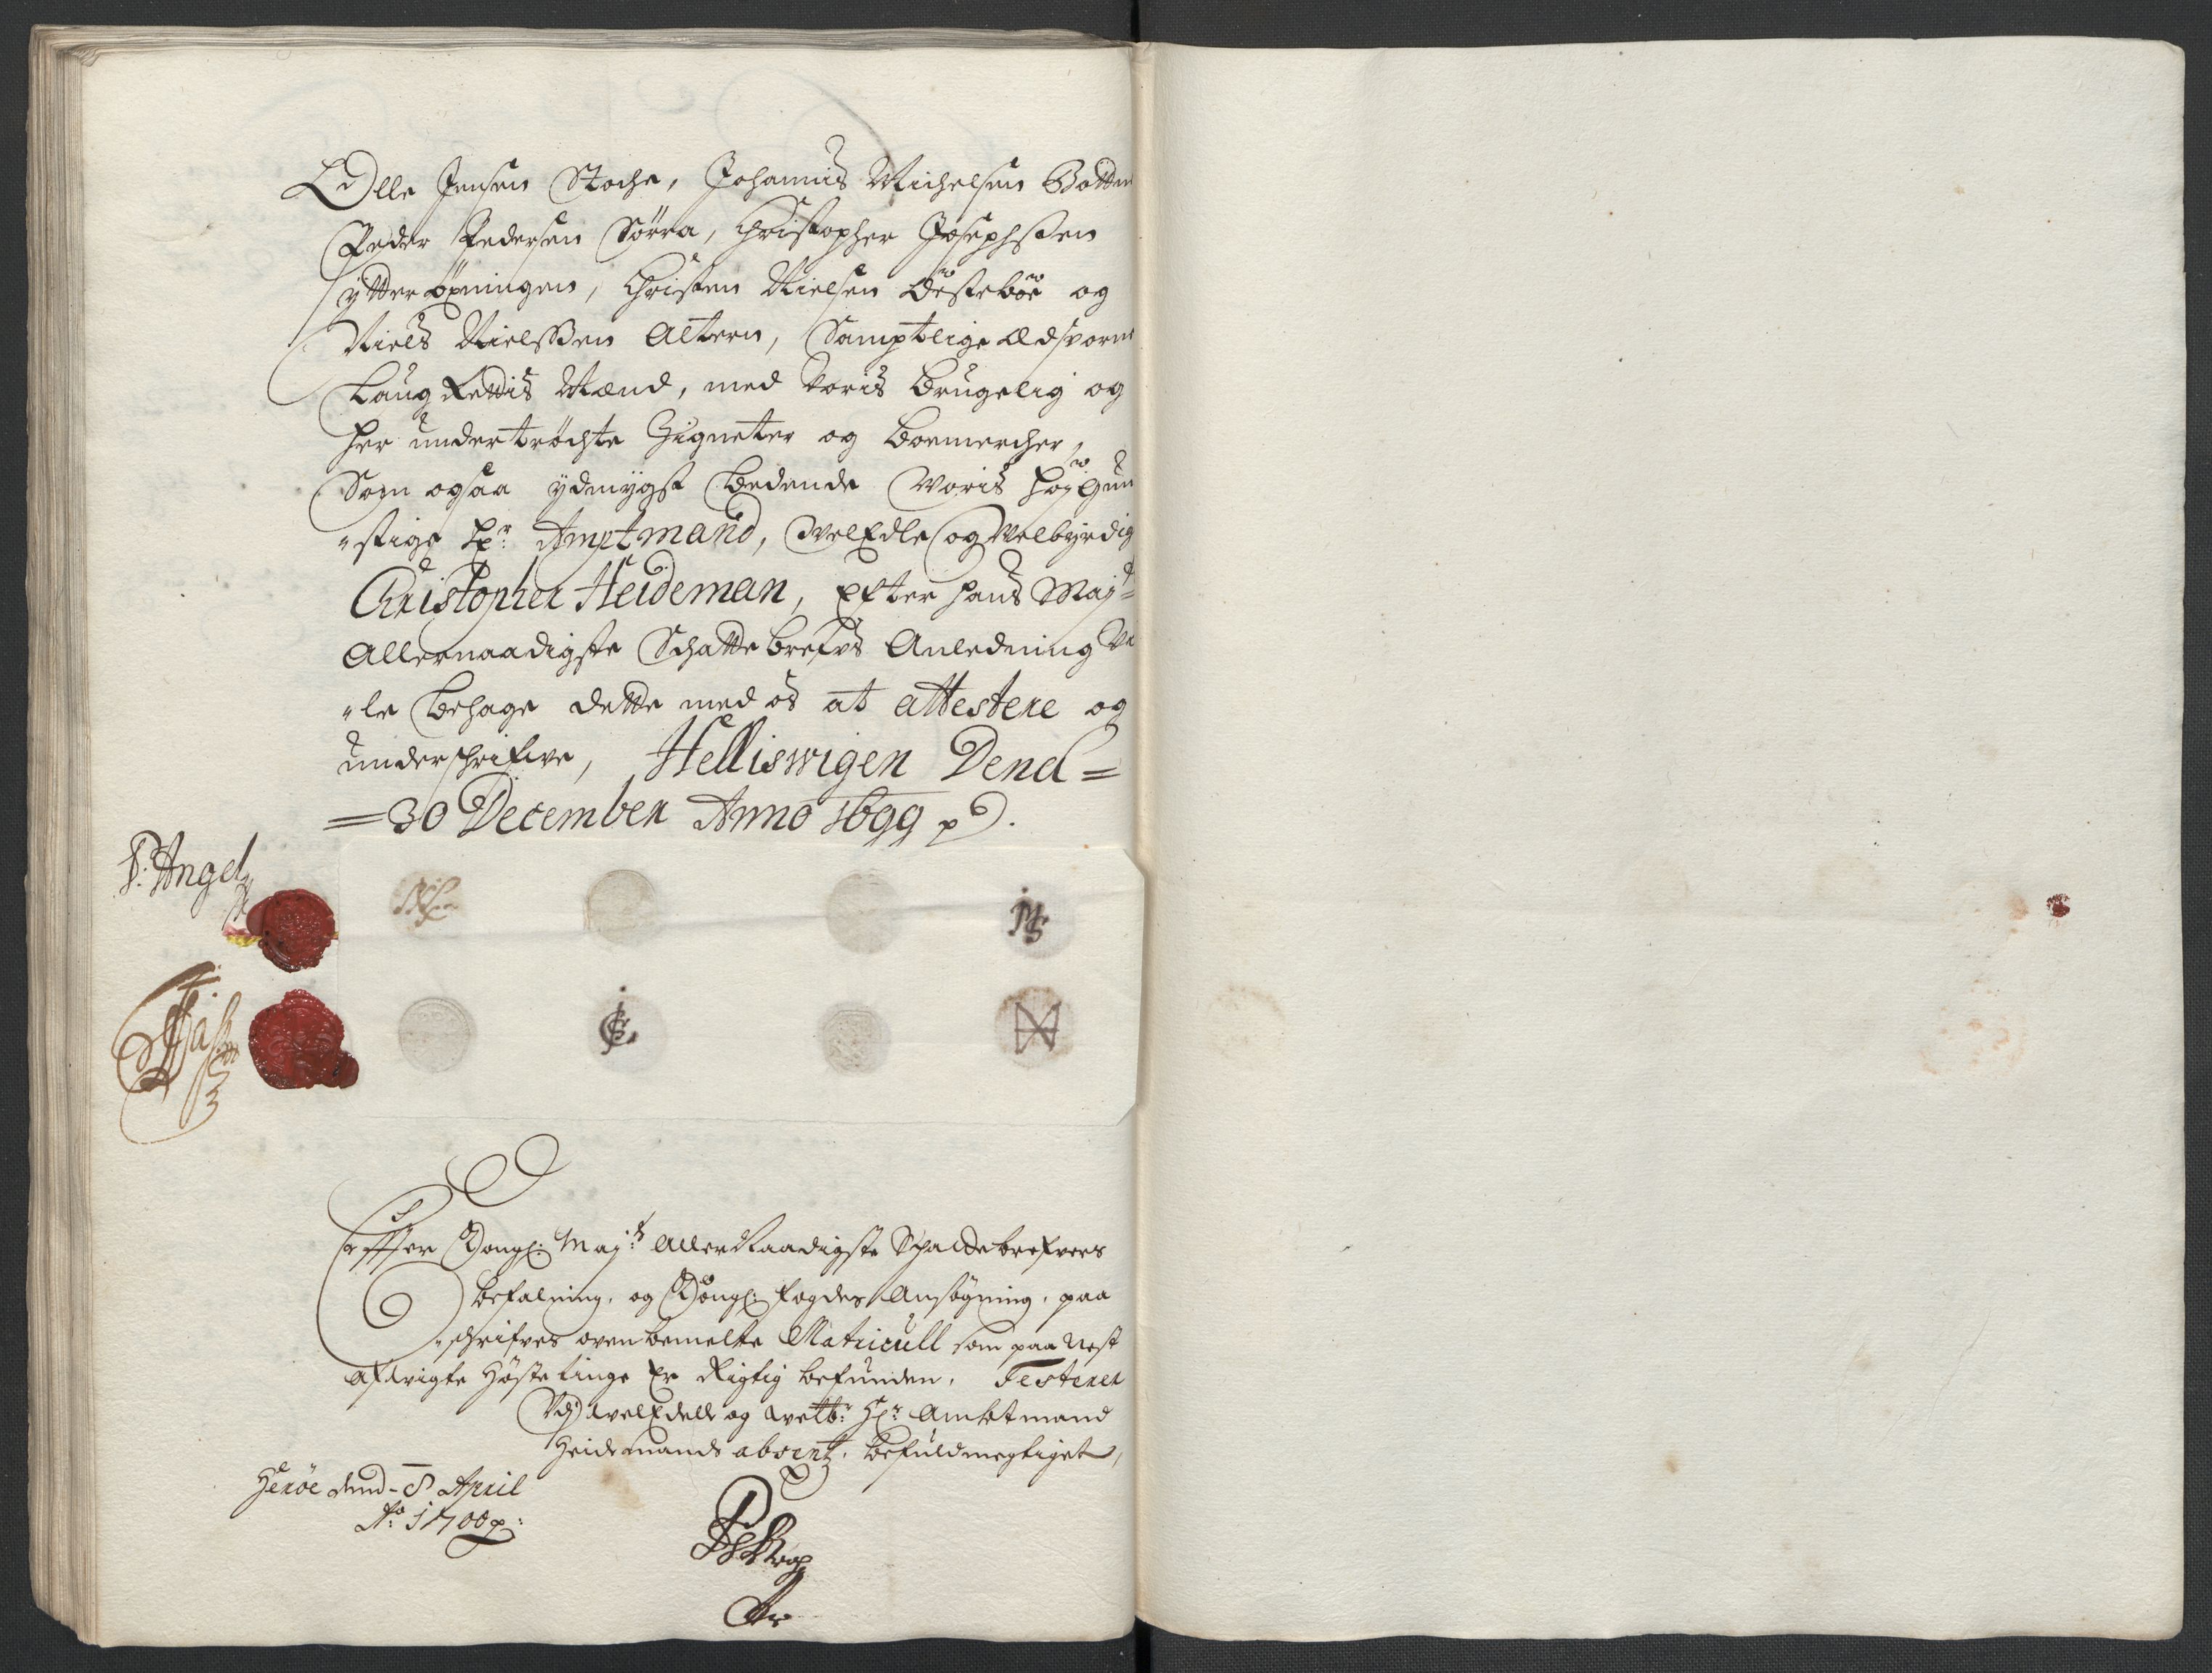 Olle Jensen Stoche, Johannis Michelsen Botten
Peder Pedersen Sörra, Christopher Josephssen
ytter öxningen, Christen Nielsen Östeböe og
Niels Nielssen Altern, Samptlige Edsvorne
Laug Rettis Mænd, med voris brugelig og
her undertröchte Zigneter og boemercher,
Som ogsaa ydmygst bedende Woris höygun
"stige Hr: Amptmand, WelEdle og Welbyrdig
Christopher Heideman, Efter hans Mayts
Allernaadigste Schattebrefvs Anledning Va
"le behage dette med os at attestere og
underschrifve, Helliswigen Dend =
= 30 December Anno 1699 p.
P: Angel
Effter Kongl: May:ts AllerNaadigste Schattebrefvers
befalning, og Kongl: fogdes Ansögning, paa
"schrifves ovenbemelte Matricull som paa Nest
afvigte Höste tinge Er Rigtig befunden, Testerer
Velædelle og Welb: Hr: Ambtmand
Heidemands absentz, befuldmegtiget,
Heröe dend - 8 April
Ao: 1700 p: